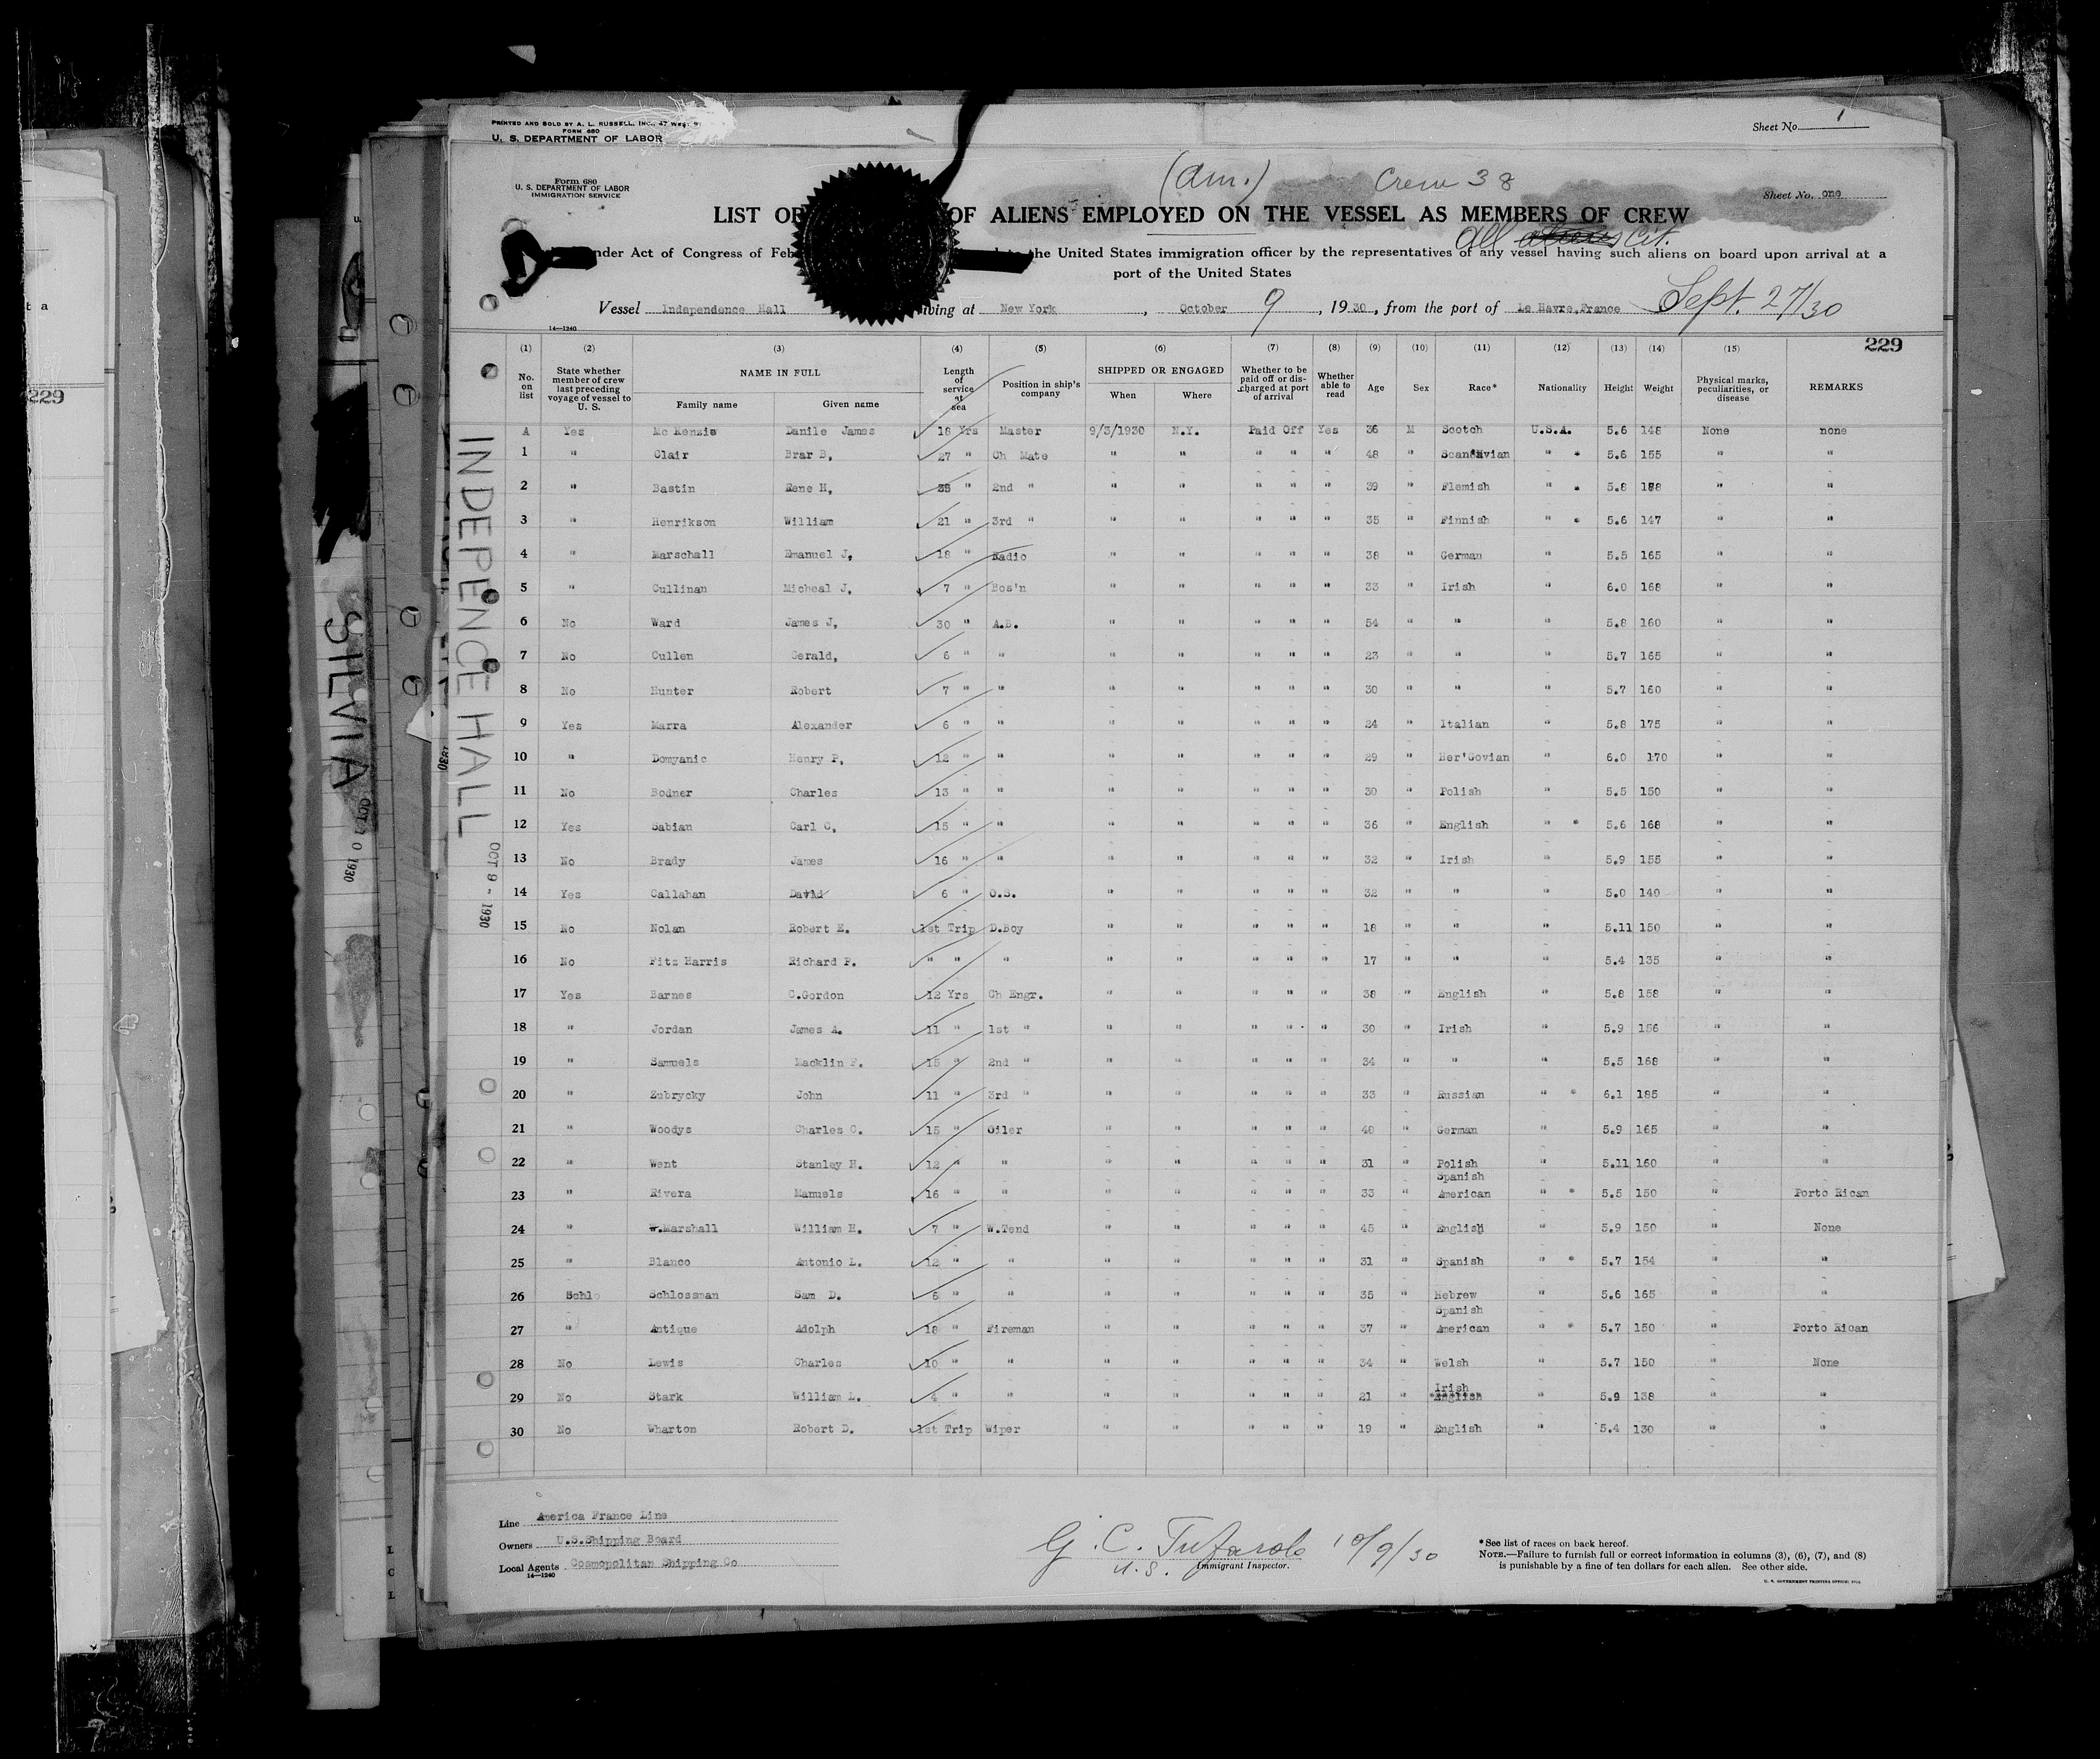 PRINTED AND SOLD BY A. L. RUSSELL, INC., 47 West
FORM 680
U. S. DEPARTMENT OF LABOR
Sheet No. 1
Form 680
U. S. DEPARTMENT OF LABOR
IMMIGRATION SERVICE
(Am.) Crew 38
Sheet No. one
LIST OR OF ALIENS EMPLOYED ON THE VESSEL AS MEMBERS OF CREW
All aliens Cit.
nder Act of Congress of Feb the United States immigration officer by the representatives of any vessel having such aliens on board upon arrival at a
port of the United States
Vessel Independence Hall iving at New York, October 9, 1930, from the port of Le Havre, France Sept. 27/30
14—1240
229
(1) (2) (3) (4) (5) (6) (7) (8) (9) (10) (11) (12) (13) (14) (15)
No. on list State whether member of crew last preceding voyage of vessel to U. S. NAME IN FULL Family name Given name Length of service at sea Position in ship's company SHIPPED OR ENGAGED When Where Whether to be paid off or discharged at port of arrival Whether able to read Age Sex Race* Nationality Height Weight Physical marks, peculiarities, or disease REMARKS
A Yes Mc Kenzie Danile James 18 Yrs Master 9/3/1930 N.Y. Paid Off Yes 36 M Scotch U.S.A. 5.6 148 None none
1 " Clair Brar B, 27 " Ch Mate " " " " " 48 " Scandavian " " 5.6 155 " "
2 " Bastin Rene H, 38 " 2nd " " " " " " 39 " Flemish " 5.8 188 " "
3 " Henrikson William 21 " 3rd " " " " " " 35 " Finnish " 5.6 147 " "
4 " Marschall Emanuel J, 18 " Radio " " " " " 38 " German " 5.5 165 " "
5 " Cullinan Micheal J, 7 " Bos'n " " " " " 33 " Irish " 6.0 168 " "
6 No Ward James J, 30 " A.B. " " " " " 54 " " " 5.8 160 " "
7 No Cullen Gerald, 6 " " " " " " " 23 " " " 5.7 165 " "
8 No Hunter Robert 7 " " " " " " " 30 " " " 5.7 160 " "
9 Yes Marra Alexander 6 " " " " " " " 24 " Italian " 5.8 175 " "
10 " Domyanic Henry P, 12 " " " " " " " 29 " Her'Govian " 6.0 170 " "
11 No Bodner Charles 13 " " " " " " " 30 " Polish " 5.5 150 " "
12 Yes Sabian Carl C, 15 " " " " " " " 36 " English " 5.6 168 " "
13 No Brady James 16 " " " " " " " 32 " Irish " 5.9 155 " "
14 Yes Callahan David 6 " O.S. " " " " " 32 " " " 5.0 140 " "
15 No Nolan Robert E. 1st Trip D.Boy " " " " " 18 " " " 5.11 150 " "
16 No Fitz Harris Richard P. " " " " " " " " 17 " " " 5.4 135 " "
17 Yes Barnes C.Gordon 12 Yrs Ch Engr. " " " " " 38 " English " 5.8 158 " "
18 " Jordan James A. 11 " 1st " " " " " " 30 " Irish " 5.9 156 " "
19 " Samuels Macklin F. 15 " 2nd " " " " " " 34 " " " 5.5 168 " "
20 " Zubrycky John 11 " 3rd " " " " " " 33 " Russian " 6.1 185 " "
21 " Woodys Charles C. 15 " Oiler " " " " " 40 " German " 5.9 165 " "
22 " Went Stanley H. 12 " " " " " " " 31 " Polish " 5.11 160 " "
23 " Rivera Manuels 16 " " " " " " " 33 " Spanish American " 5.5 150 " Porto Rican
24 " W.Marshall William H. 7 " W.Tend " " " " " 45 " English " 5.9 150 " None
25 " Blanco Antonio L. 12 " " " " " " " 31 " Spanish " 5.7 154 " "
26 Schlo Schlossman Sam D. 6 " " " " " " " 35 " Hebrew " 5.6 165 " "
27 " Antique Adolph 18 " Fireman " " " " " 37 " Spanish American " 5.7 150 " Porto Rican
28 No Lewis Charles 10 " " " " " " " 34 " Welsh " 5.7 150 " None
29 No Stark William L. 4 " " " " " " " 21 " Irish English " 5.9 138 " "
30 No Wharton Robert D. 1st Trip Wiper " " " " " 19 " English " 5.4 130 " "
INDEPENCE HALL
OCT 9 - 1930
SILVIA
OCT 10 1930
229
Line America France Line
Owners U.S.Shipping Board
Local Agents Cosmopolitan Shipping Co
14—1240
G. C. Tufarolo 10/9/30
U.S. Immigrant Inspector.
*See list of races on back hereof.
NOTE.—Failure to furnish full or correct information in columns (3), (6), (7), and (8)
is punishable by a fine of ten dollars for each alien. See other side.